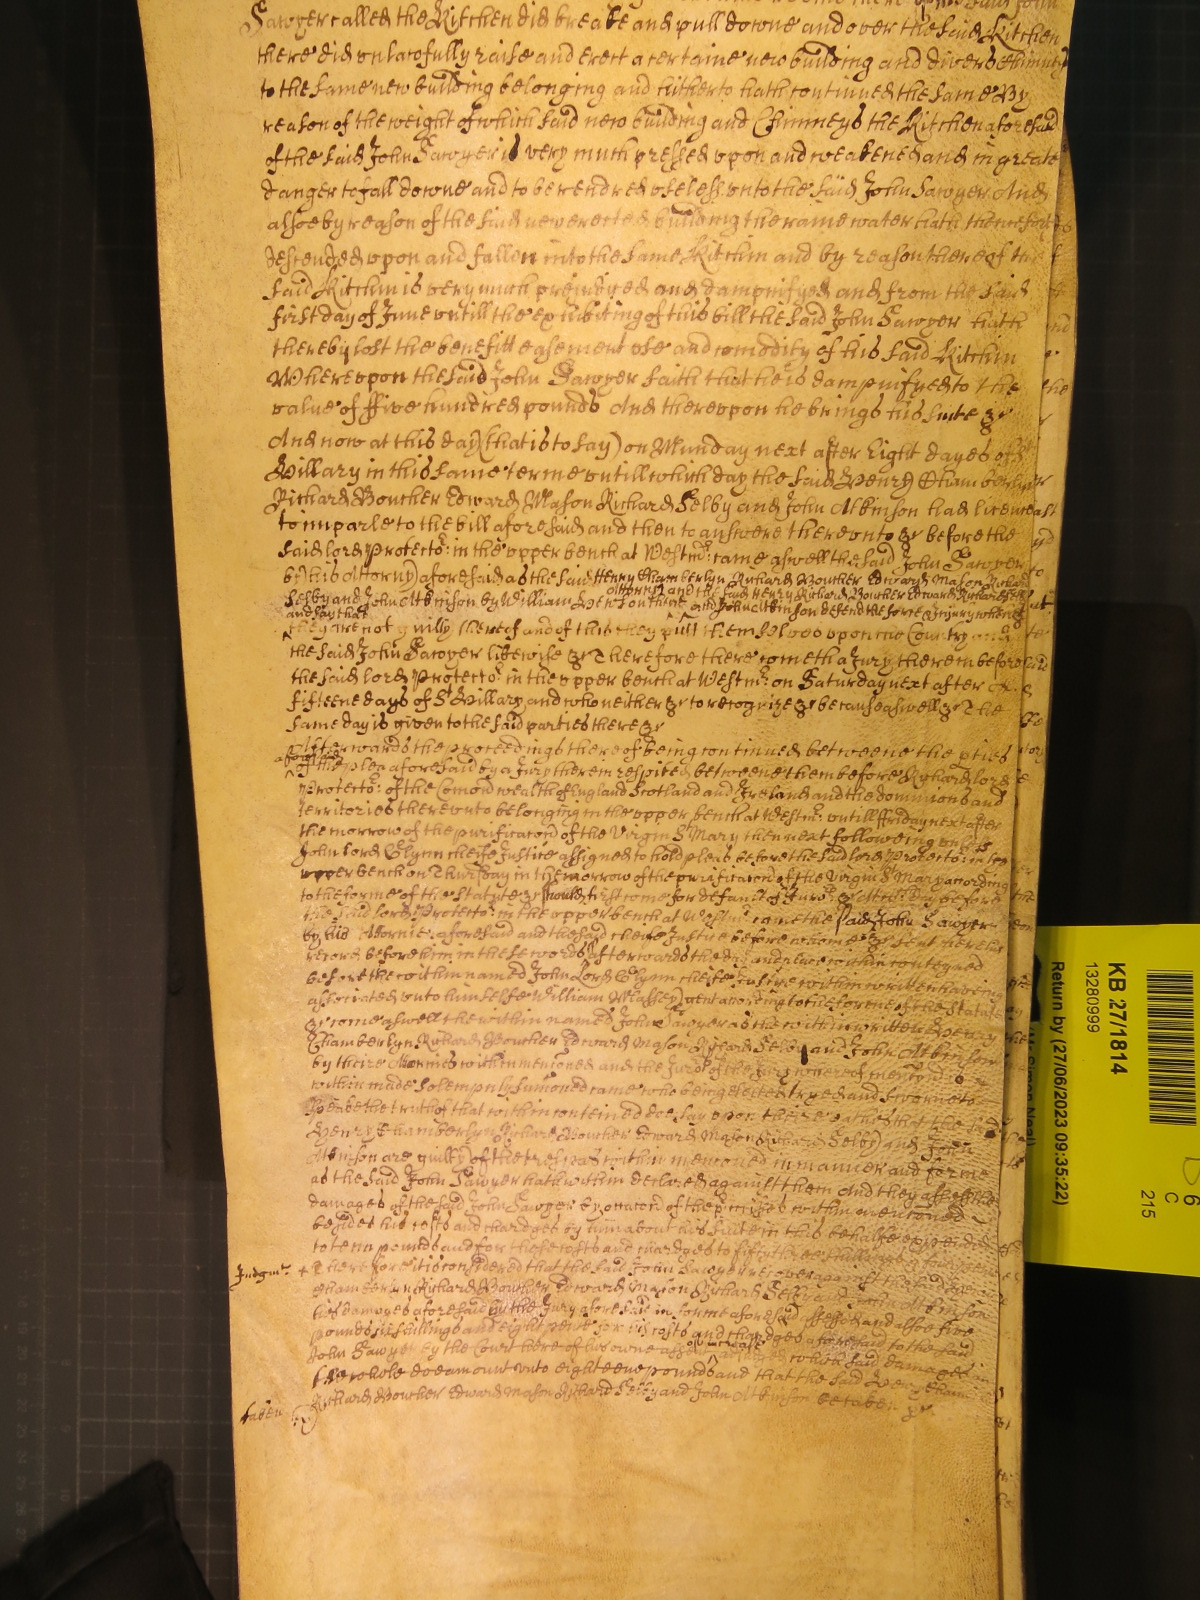 Sawyer called the Kitchen did breake and pull downe and over the said Kitchen
there did unlawfully raise and erect a certaine new building and divers Chimnys
to the same new building belonging and hitherto hath continued the same By
reason of the weight of which said new building and Chimneys the Kitchen aforesaid
of the said John Sawyer is very much pressed upon and weakened and in greate
danger to fall downe and to be rendred uselesse unto the said John Sawyer And
alsoe by reason of the said new erected building the raine water hath
descended upon and fallen into the same Kitchin and by reason thereof the
said Kitchin is very much preiudyced and dampnifyed and from the said
first day of June untill the exhibiting of this bill the said John Sawyer hath
thereby lost the benefitt easement use and comodity of his said Kitchin
Whereupon the said John Sawyer saith that he is dampnifyed to the
value of ffive hundred pounds And thereupon he brings his suite &c
And now at this day (that is to say) on Munday next after Eight dayes of St
Hillary in this same terme untill which day the said Henry Chamberlyn
Richard Boucher Edward Mason Richard Selby and John Atkinson had licence
to imparle to the bill aforesaid and then to answere thereunto &c before the
said lord Protector: in the upper bench at Westmr: came aswell the said John Sawyer
by his Attorny aforesaid as the said Henry Chamberlyn Richard Boucher Edward Mason Richard
Selby and John Atkinson by William their Attorny and the said Henry Richard Boucher Edward Richard
and John Atkinson defend the force & iniury when &c
and say that
they are not guilty thereof and of this they putt themselves upon the Country and
the said John Sawyer likewise &c Therefore there cometh a Jury therein before
the said lord Protector: in the upper bench at Westmr: on Saturday next after
fifteene days of St Hillary and who neither &c to recognize &c because aswell &c The
same day is given to the said parties there &c
Afterwards the proceedings thereof being continued betweene the pties
aforesaid
of the plea aforesaid by a Jury therein respited betweene them before Richard lord
Protector: of the Comonwealth of England Scotland and Ireland and the dominions and
territories thereunto belonging in the upper bench at Westmr: untill ffriday next after
the morrow of the purificacon of the Virgin St Mary then next following unles
John lord Glynn cheife Justice assigned to hold pleas before the said lord Protector: in the
upper bench on Thursday in the morrow of the purificacon of the Virgin St Mary according
to the forme of the statute &c should first come for default of Juro:rs &c Att which day before
the said lord Protector: in the upper bench at Westmr: came the said John Sawyer
by his Attornie aforesaid and the said cheife Justice before whome &c sent here his
record before him in these words Afterwards the day and place within conteyned
before the within named John Lord Glynn cheife Justice within written haveing
associated unto himselfe William Massey gent according to the forme of the statute
&c come aswell the within named John Sawyer as the within written Henry
Chamberlyn Richard Boucher Edward Mason Richard Selby and John Atkinson
by theire Attornies within menconed and the Juro:rs of the Jury whereof mencon is
within made solempnly sumoned came who being elected tryed and sworne to
speake the truth of that within conteined doe say upon their oathes that the said
Henry Chamberlyn Richard Boucher Edward Mason Richard Selby and John
Atkinson are guilty of the trespas within menconed in manner and forme
as the said John Sawyer hath within declared against them And they assesse the
damages of the said John Sawyer by occacon of the premises within menconed
besides his costs and chardges by him about his suite in this behalfe expended
to tenn pounds and for those costs and chardges to fifty three shillings
Judgmt: + Therefore it is considered that the said John Sawyer recover against the said Henry
Chamberlyn Richard Boucher Edward Mason Richard Selby and John Atkinson
his damages aforesaid by the Jury aforesaid in forme aforesaid assessed and alsoe five
pounds six shillings and eight pence for his costs and chardges aforesaid to the said
John Sawyer by the Court here of his owne assent of increase adiudged which said damages in
the whole doe amount unto eighteene pounds and that the said Henry Chamb
taken Richard Boucher Edward Mason Richard Selby and John Atkinson be taken &c
KB 27/1814
13280999
Return by (27/06/2023 09:35:22)
6
C
215